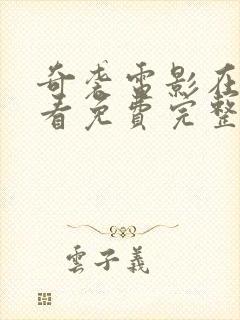 奇袭雷影在
看免費完整
雲子義